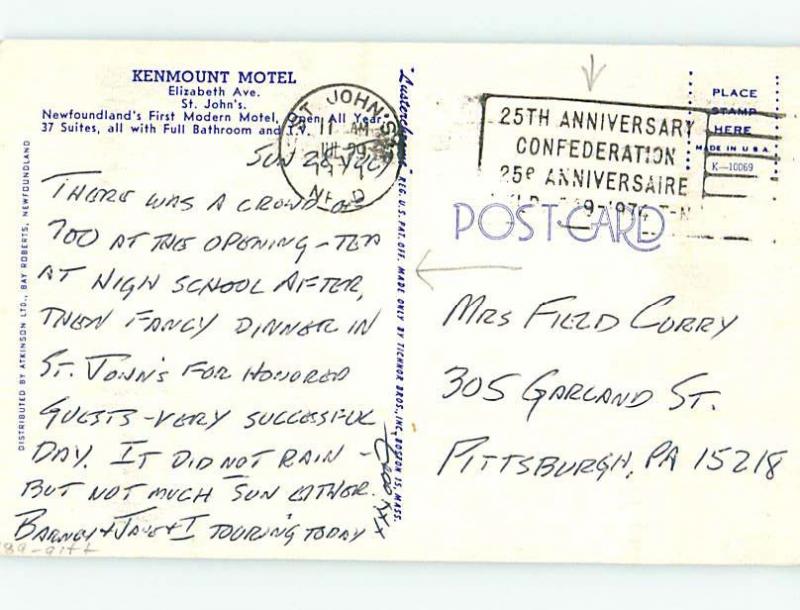 KENMOUNT MOTEL
Elizabeth Ave.
St. John's.
Newfoundland's First Modern Motel, Open All Year
37 Suites, all with Full Bathroom and T.V.
SUN 28 JULY
THERE WAS A CROWD OF
700 AT THE OPENING - TEA
AT HIGH SCHOOL AFTER,
THEN FANCY DINNER IN
ST. JOHN'S FOR HONORED
GUESTS - VERY SUCCESSFUL
DAY. IT DID NOT RAIN -
BUT NOT MUCH SUN EITHER.
BARNEY & JANE & I TOURING TODAY
XX
DISTRIBUTED BY ATKINSON LTD., BAY ROBERTS, NEWFOUNDLAND
ST JOHN'S
11 AM
29
NFLD
REG. U.S. PAT. OFF. MADE ONLY BY TICHNOR BROS., INC., BOSTON 15, MASS.
25TH ANNIVERSARY
CONFEDERATION
25e ANNIVERSAIRE
1949-1974
PLACE
STAMP
HERE
MADE IN U.S.A.
K-10069
POST CARD
MRS FIELD CURRY
305 GARLAND ST.
PITTSBURGH, PA 15218